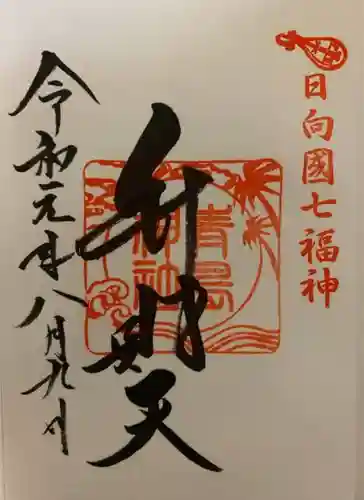 日向國七福神
弁財天
青島神社
令和元年八月九日